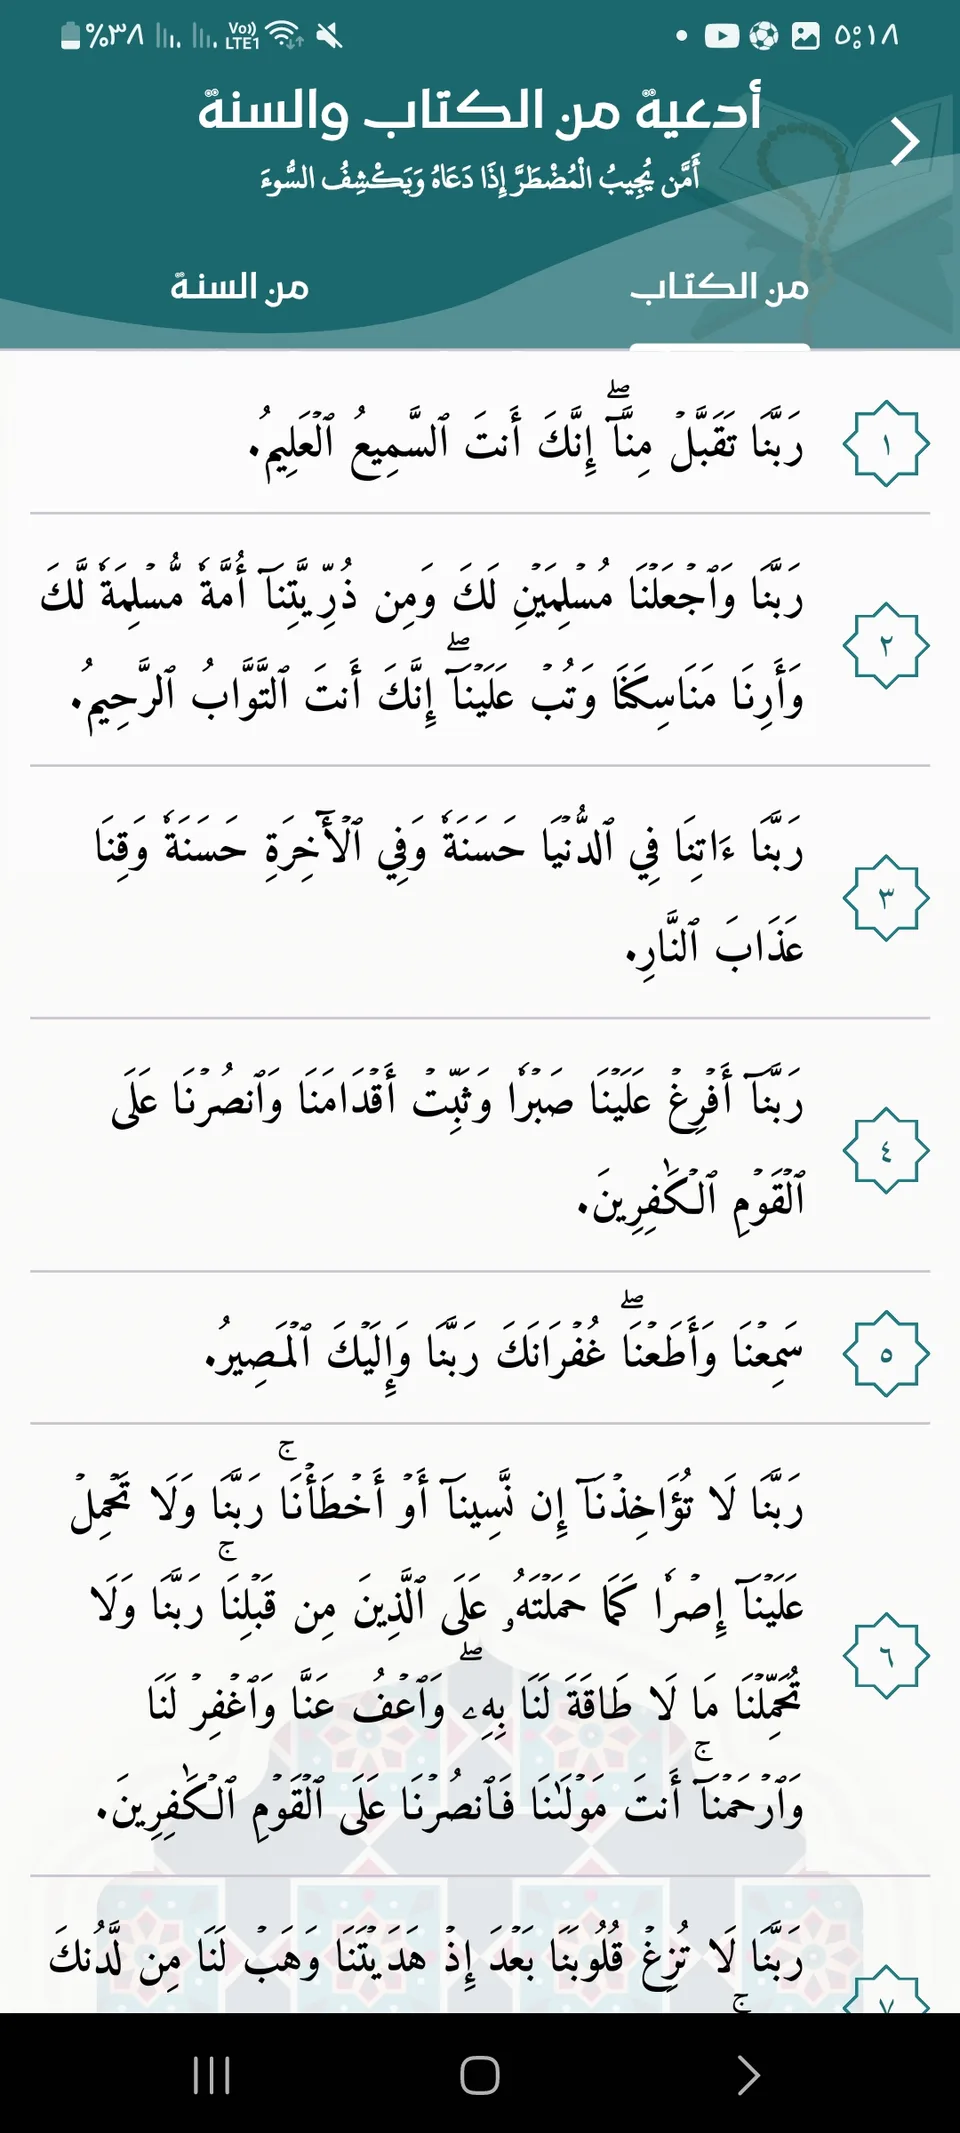 ٥:١٨
Vo)) LTE1
%٣٨
أدعية من الكتاب والسنة
أَمَّن يُجِيبُ الْمُضْطَرَّ إِذَا دَعَاهُ وَيَكْشِفُ السُّوءَ
من الكتاب
من السنة
١
رَبَّنَا تَقَبَّلۡ مِنَّآۖ إِنَّكَ أَنتَ ٱلسَّمِيعُ ٱلۡعَلِيمُ.
٢
رَبَّنَا وَٱجۡعَلۡنَا مُسۡلِمَيۡنِ لَكَ وَمِن ذُرِّيَّتِنَآ أُمَّةٗ مُّسۡلِمَةٗ لَّكَ
وَأَرِنَا مَنَاسِكَنَا وَتُبۡ عَلَيۡنَآۖ إِنَّكَ أَنتَ ٱلتَّوَّابُ ٱلرَّحِيمُ.
٣
رَبَّنَا ءَاتِنَا فِي ٱلدُّنۡيَا حَسَنَةٗ وَفِي ٱلۡأٓخِرَةِ حَسَنَةٗ وَقِنَا
عَذَابَ ٱلنَّارِ.
٤
رَبَّنَآ أَفۡرِغۡ عَلَيۡنَا صَبۡرٗا وَثَبِّتۡ أَقۡدَامَنَا وَٱنصُرۡنَا عَلَى
ٱلۡقَوۡمِ ٱلۡكَٰفِرِينَ.
٥
سَمِعۡنَا وَأَطَعۡنَاۖ غُفۡرَانَكَ رَبَّنَا وَإِلَيۡكَ ٱلۡمَصِيرُ.
٦
رَبَّنَا لَا تُؤَاخِذۡنَآ إِن نَّسِينَآ أَوۡ أَخۡطَأۡنَاۚ رَبَّنَا وَلَا تَحۡمِلۡ
عَلَيۡنَآ إِصۡرٗا كَمَا حَمَلۡتَهُۥ عَلَى ٱلَّذِينَ مِن قَبۡلِنَاۚ رَبَّنَا وَلَا
تُحَمِّلۡنَا مَا لَا طَاقَةَ لَنَا بِهِۦۖ وَٱعۡفُ عَنَّا وَٱغۡفِرۡ لَنَا
وَٱرۡحَمۡنَآۚ أَنتَ مَوۡلَىٰنَا فَٱنصُرۡنَا عَلَى ٱلۡقَوۡمِ ٱلۡكَٰفِرِينَ.
٧
رَبَّنَا لَا تُزِغۡ قُلُوبَنَا بَعۡدَ إِذۡ هَدَيۡتَنَا وَهَبۡ لَنَا مِن لَّدُنكَ